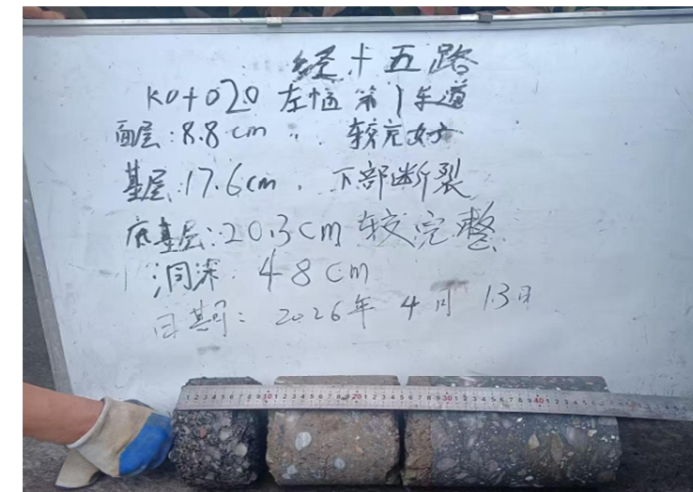 经十五路
K0+020 左幅 第1车道
面层:8.8cm, 较完好
基层:17.6cm, 下部断裂
底基层:20.3cm 较完整
洞深:48cm
日期:2026年4月13日